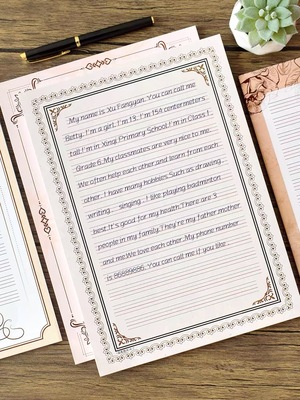 My name is Xu Fangyan. You can call me
Betty. I'm a girl. I'm 13. I'm 154 centermeters
tall. I'm in Xinqi Primary School. I'm in Class 1
Grade 6. My classmates are very nice to me.
We often help each other and learn from each
other. I have many hobbies. Such as drawing
writing singing. I like playing badminton
best. It's good for my health. There are 3
people in my family. They're my father, mother
and me. We love each other. My phone number
is 86889686. You can call me if you like.